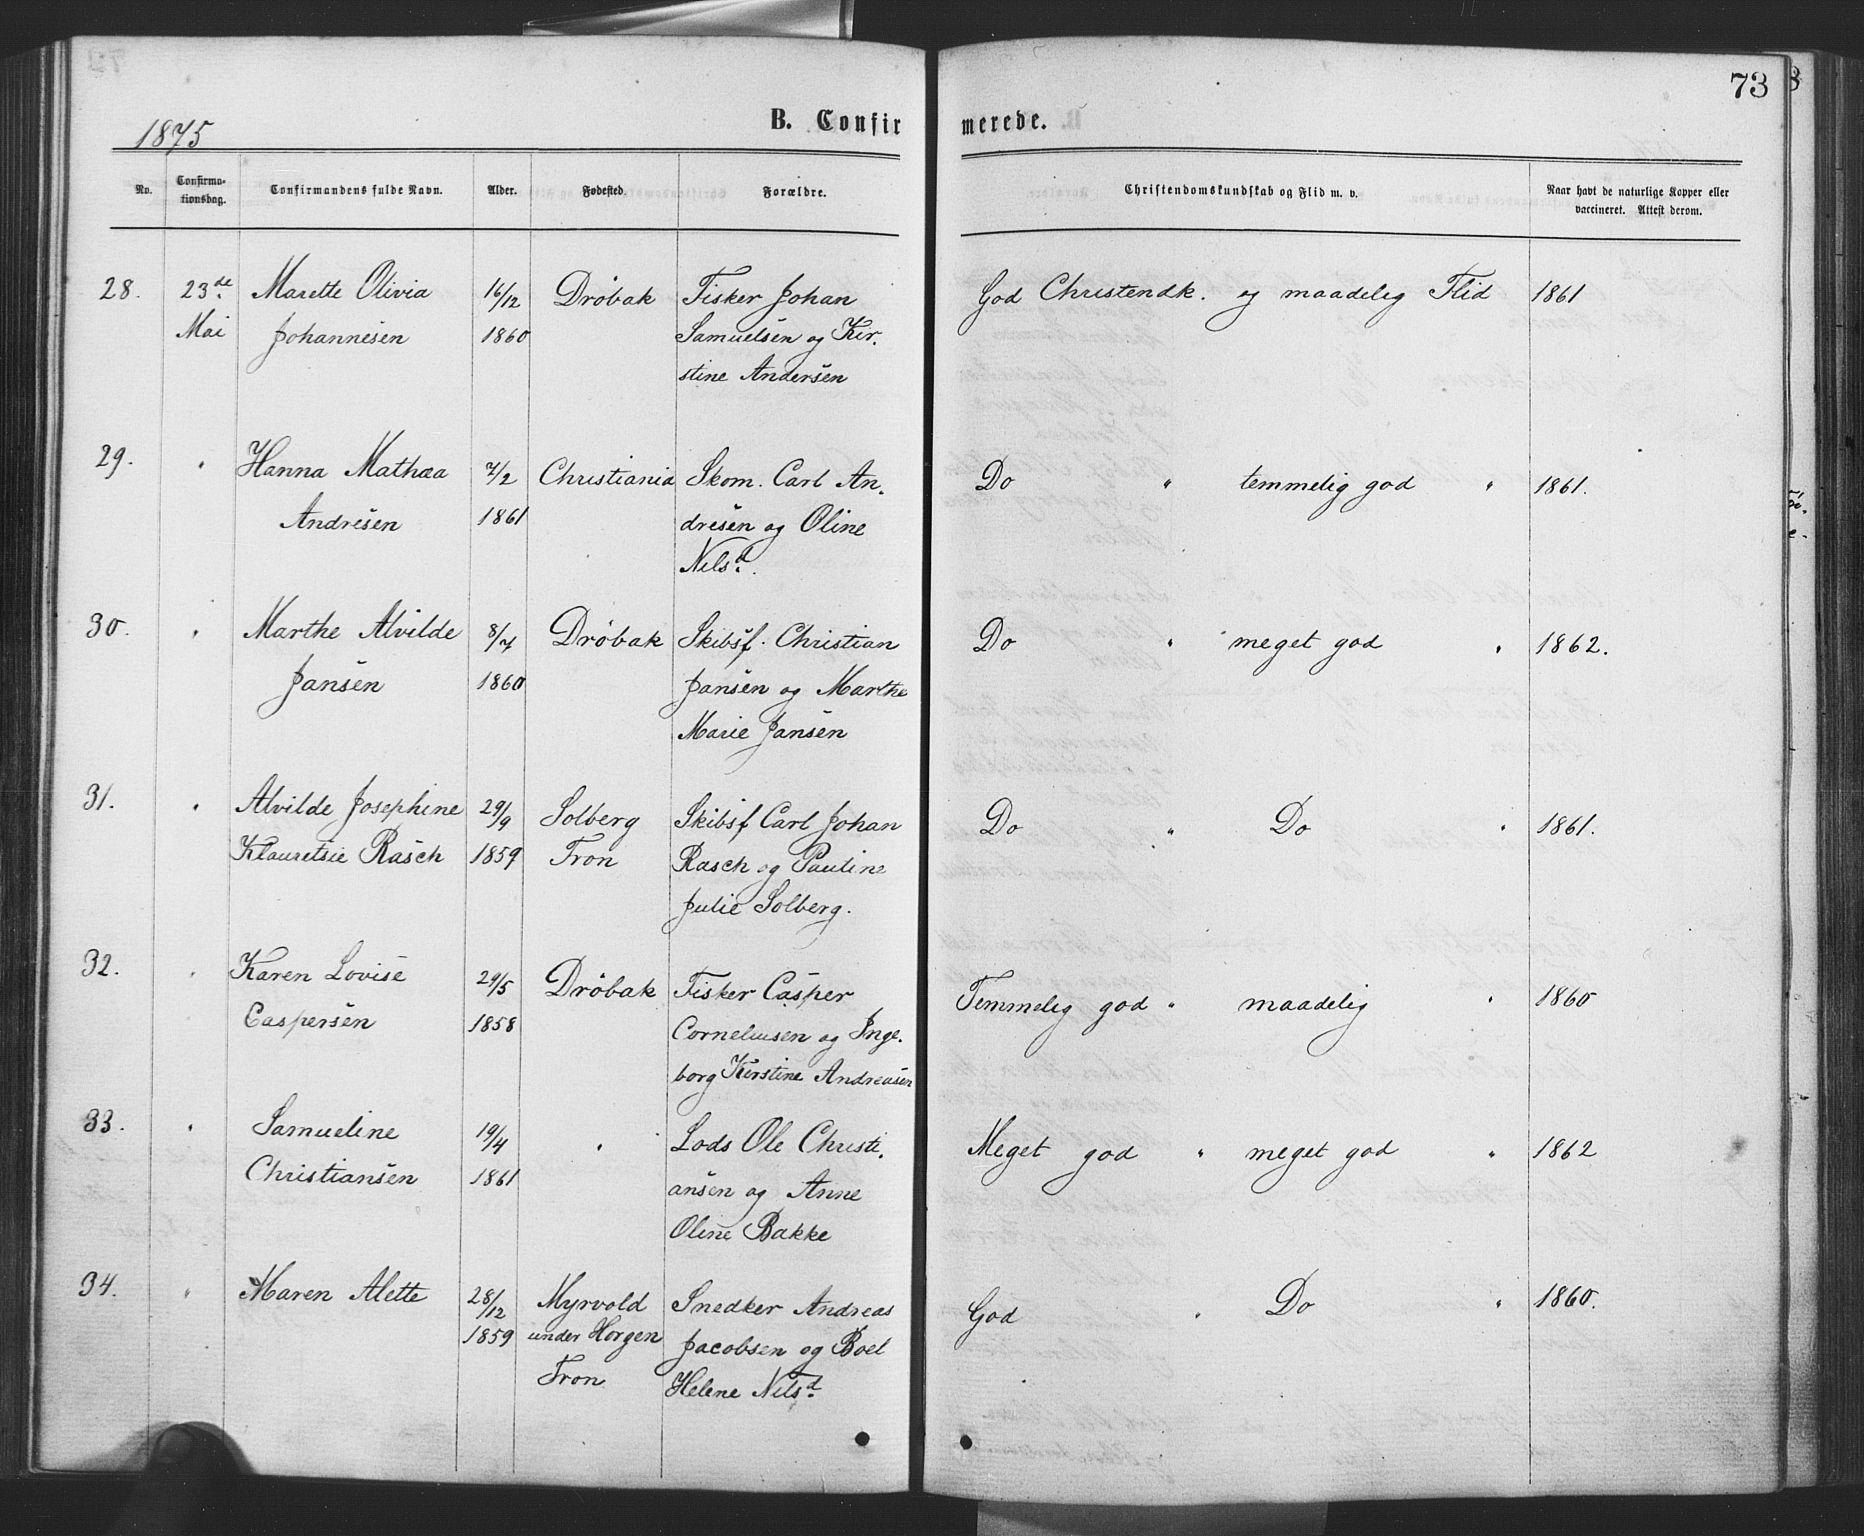 73
1875
B. Confirmerede.
No. Confirmationsdag. Confirmandens fulde Navn. Alder. Fødested. Forældre. Christendomskundskab og Flid m. v. Naar havt de naturlige Kopper eller vaccineret. Attest derom.
28. 23de Marette Olivia 16/12 Drøbak Fisker Johan God Christendk. og maadelig Flid 1861
Mai Johannesen 1860 Samuelsen og Kir-
stine Andersen
29. " Hanna Mathea 7/2 Christiania Skom. Carl An- Do " temmelig god " 1861.
Andresen 1861 dresen og Oline
Nilsd.
30. " Marthe Alvilde 8/7 Drøbak Skibsf. Christian Do " meget god " 1862.
Jansen 1860 Jansen og Marthe
Marie Jansen
31. " Alvilde Josephine 29/9 Solberg Skibsf Carl Johan Do " Do " 1861.
Rasch 1859 Fron Rasch og Pauline
Julie Solberg.
32. " Karen Lovise 29/5 Drøbak Fisker Casper Temmelig god " maadelig " 1860
Caspersen 1858 Corneliusen og Inge-
borg Kirstine Andreasen
33. " Samueline 19/4 " Lods Ole Christi- Meget god " meget god " 1862
Christiansen 1861 ansen og Anne
Oline Bakke
34. " Maren Alette 28/12 Myrvold Snedker Andreas God " Do " 1860.
1859 under Horgen Jacobsen og Boel
Fron Helene Nilsd.